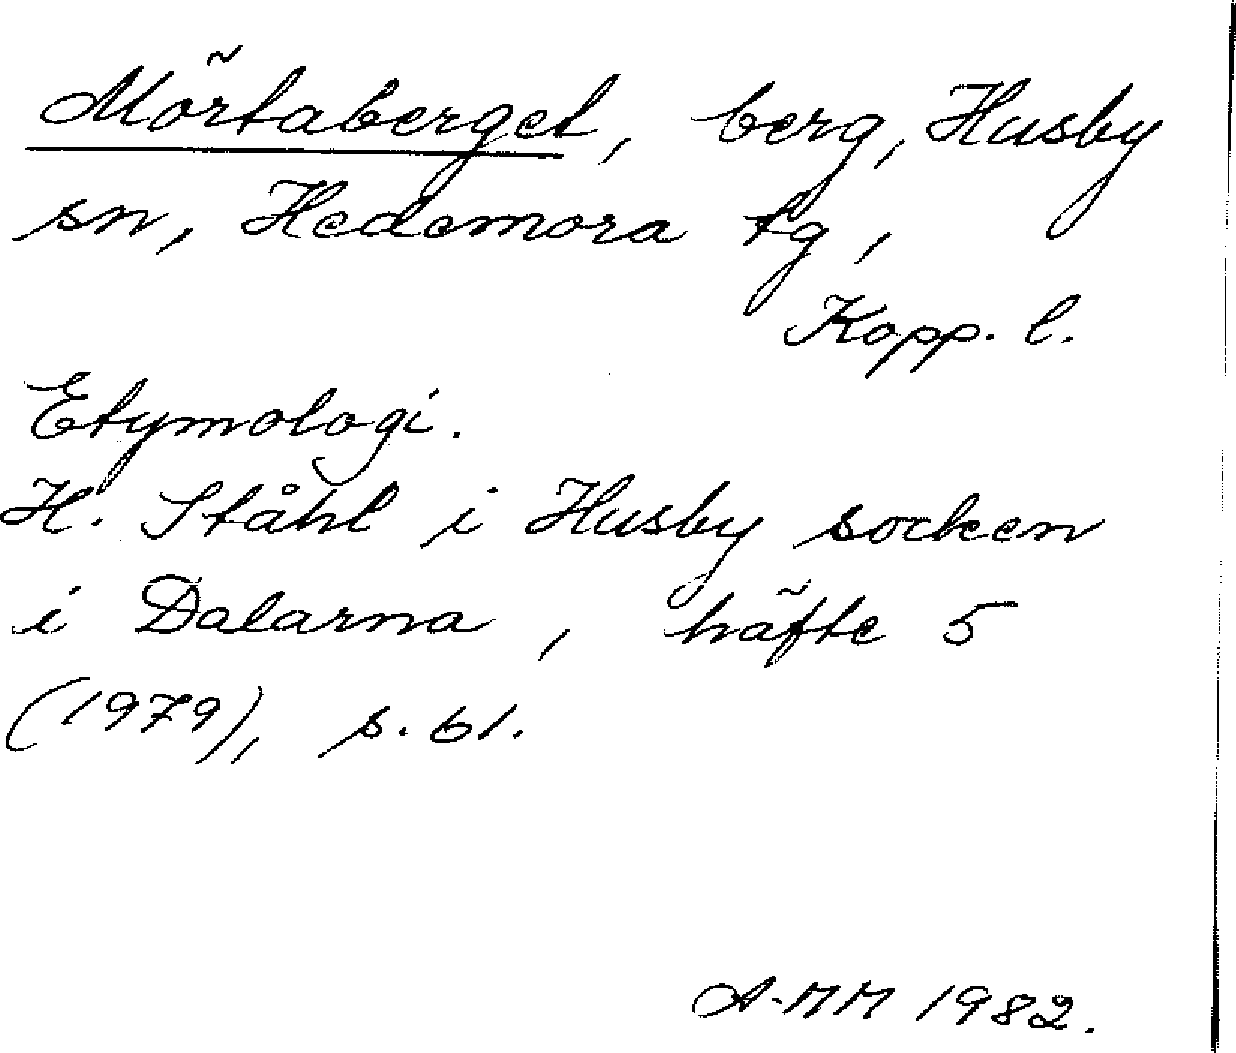 Mörtaberget, berg, Husby
sn, Hedemora tg,
Kopp. l.
Etymologi.
H. Ståhl i Husby socken
i Dalarna, häfte 5
(1979), s. 61.
A-MM 1982.